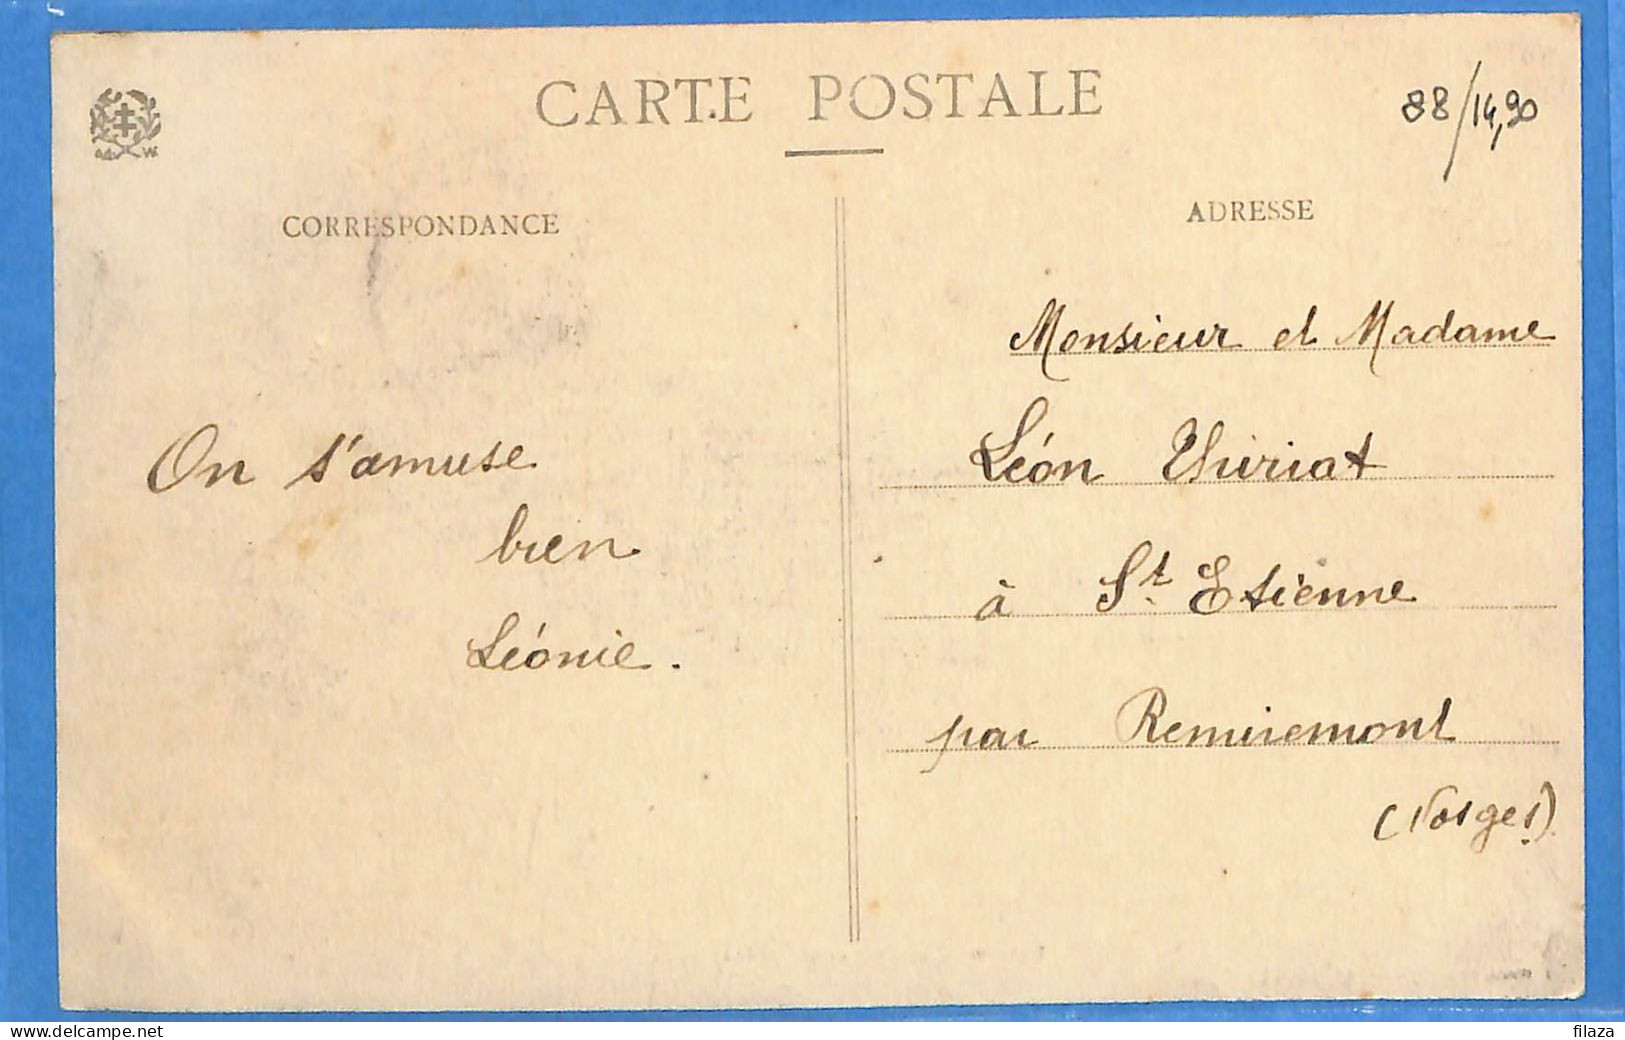 CARTE POSTALE
88/14,90
CORRESPONDANCE
ADRESSE
On s'amuse
bien
Léonie.
Monsieur et Madame
Léon Thiriat
à St. Etienne
par Remiremont
(Vosges)
www.delcampe.net
filaza